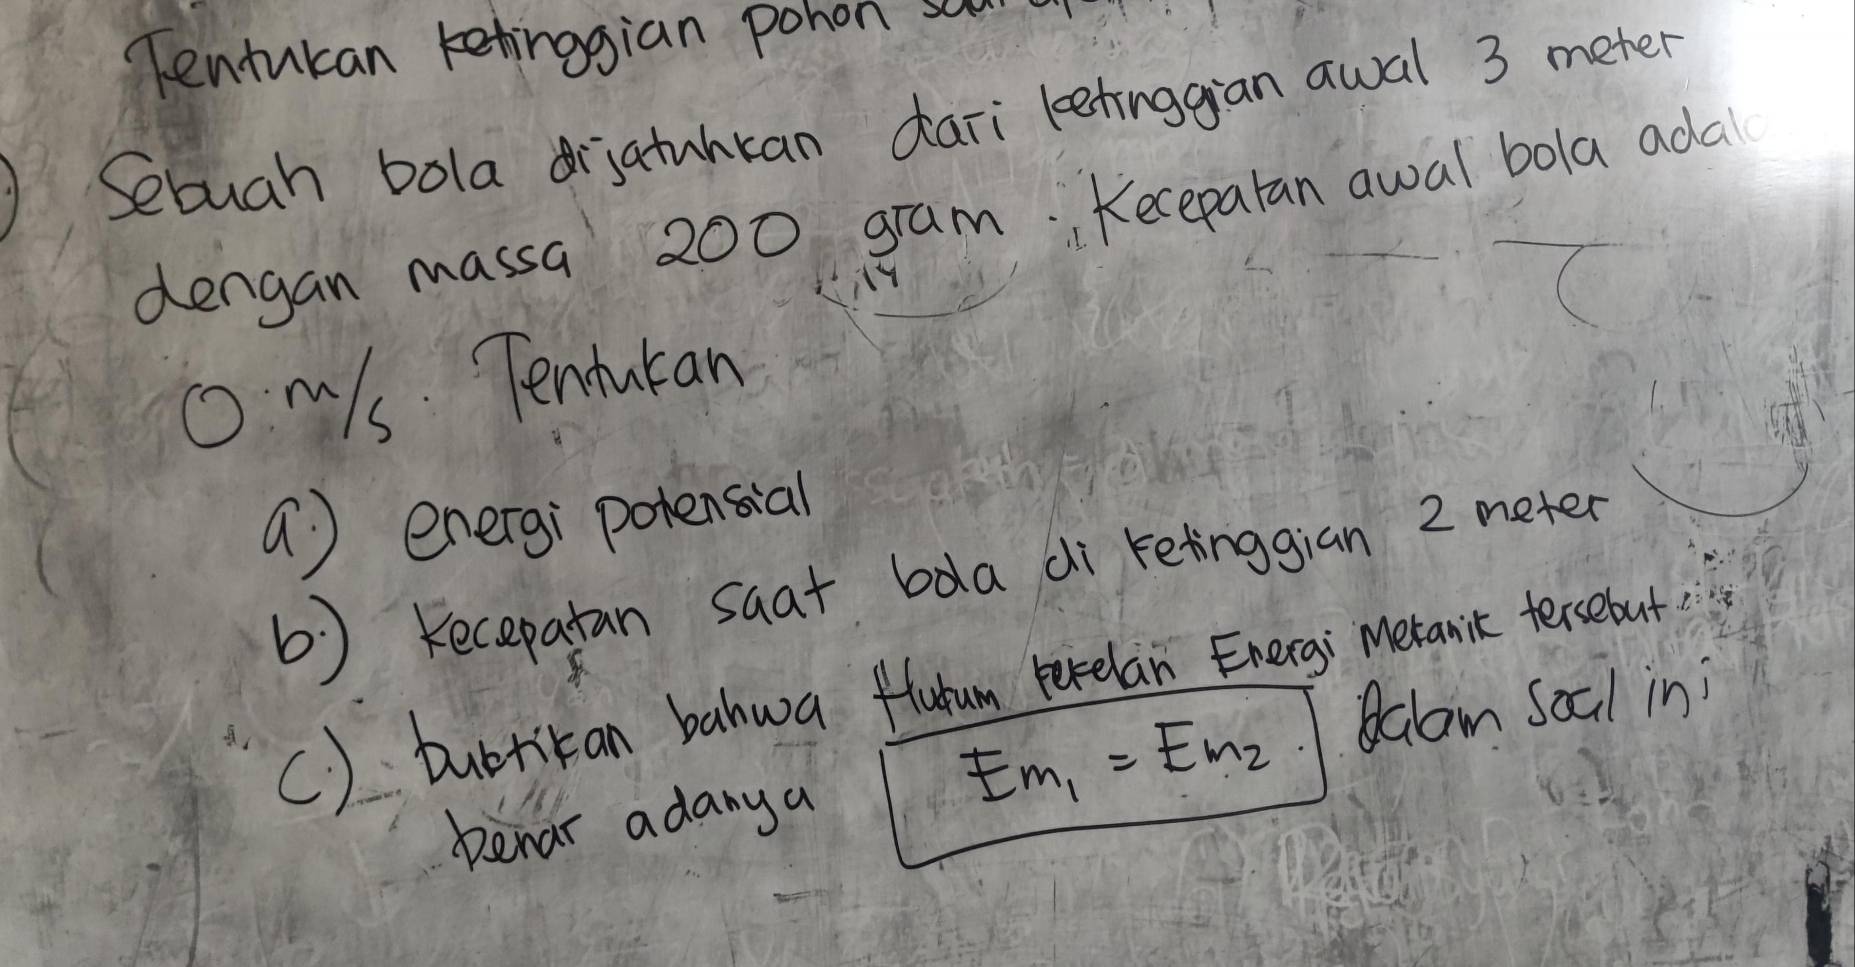 Tentukan ketinggian pohon
Sebuah bola dijatuhkan dari ketinggian awal 3 meter
dengan massa 200 gram. Kecepatan awal bola
0 m/s. Tentukan
a.) energi potensial
b.) kecepatan saat bola di ketinggian 2 meter
c.) buktikan bahwa Hukum kekelan Energi Mekanik tersebut
benar adanya Em₁ = Em₂. dalam soal ini